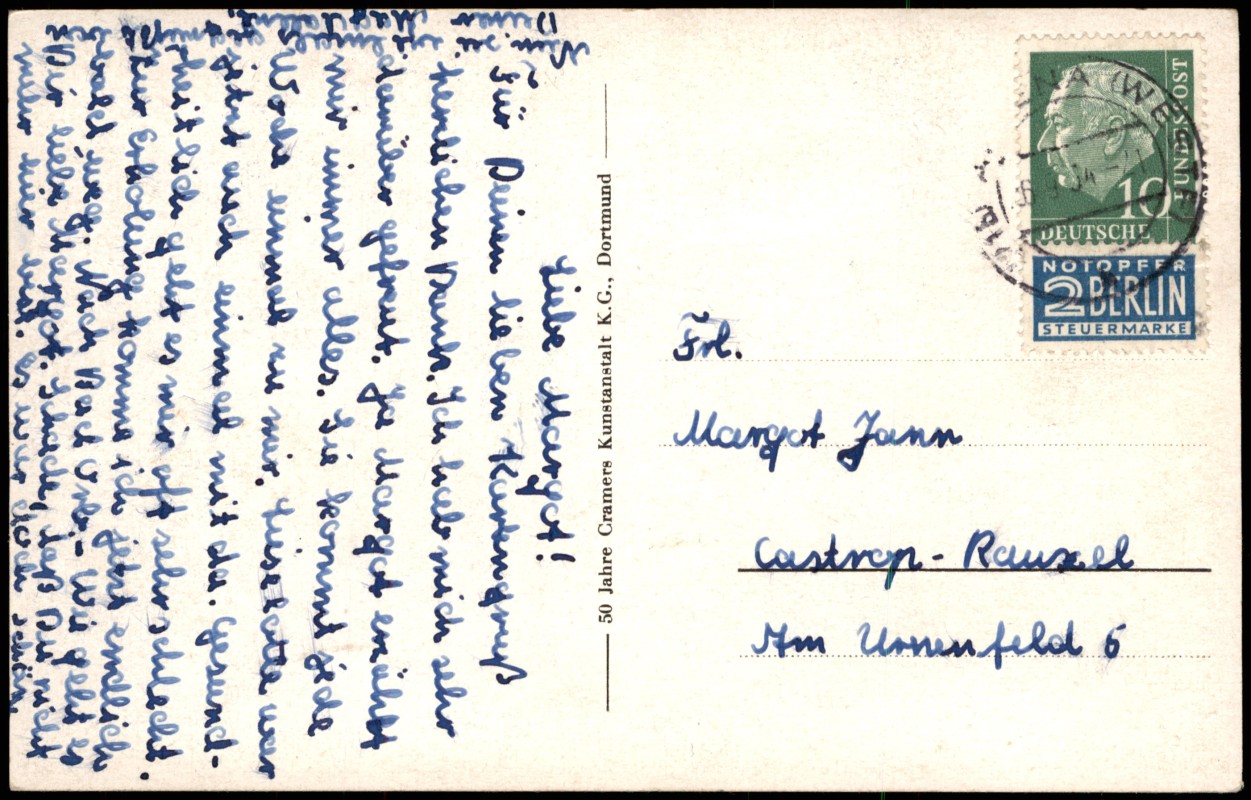 Liebe Margot!
Für Deinen lieben Kartengruß
herzlichen Dank. Ich hab mich sehr
darüber gefreut. Ja Margot erzählt
mir immer alles. Sie kommt jede
Woche einmal zu mir. Liselotte war
jetzt auch einmal mit da. Gesund-
heitlich geht es mir oft sehr schlecht.
Zur Erholung komme ich jetzt endlich
bald weg. Nach Bad Orb. Wie geht es
Dir liebe Margot. Schade, daß Du nicht
mehr hier bist. Es war doch schön
Deiner
50 Jahre Cramers Kunstanstalt K.G., Dortmund
UNNA (WESTF)
(21b)
DEUTSCHE
BUNDESPOST
10
NOTOPFER
2 BERLIN
STEUERMARKE
Frl.
Margot Jann
Castrop-Rauxel
Am Urnenfeld 6